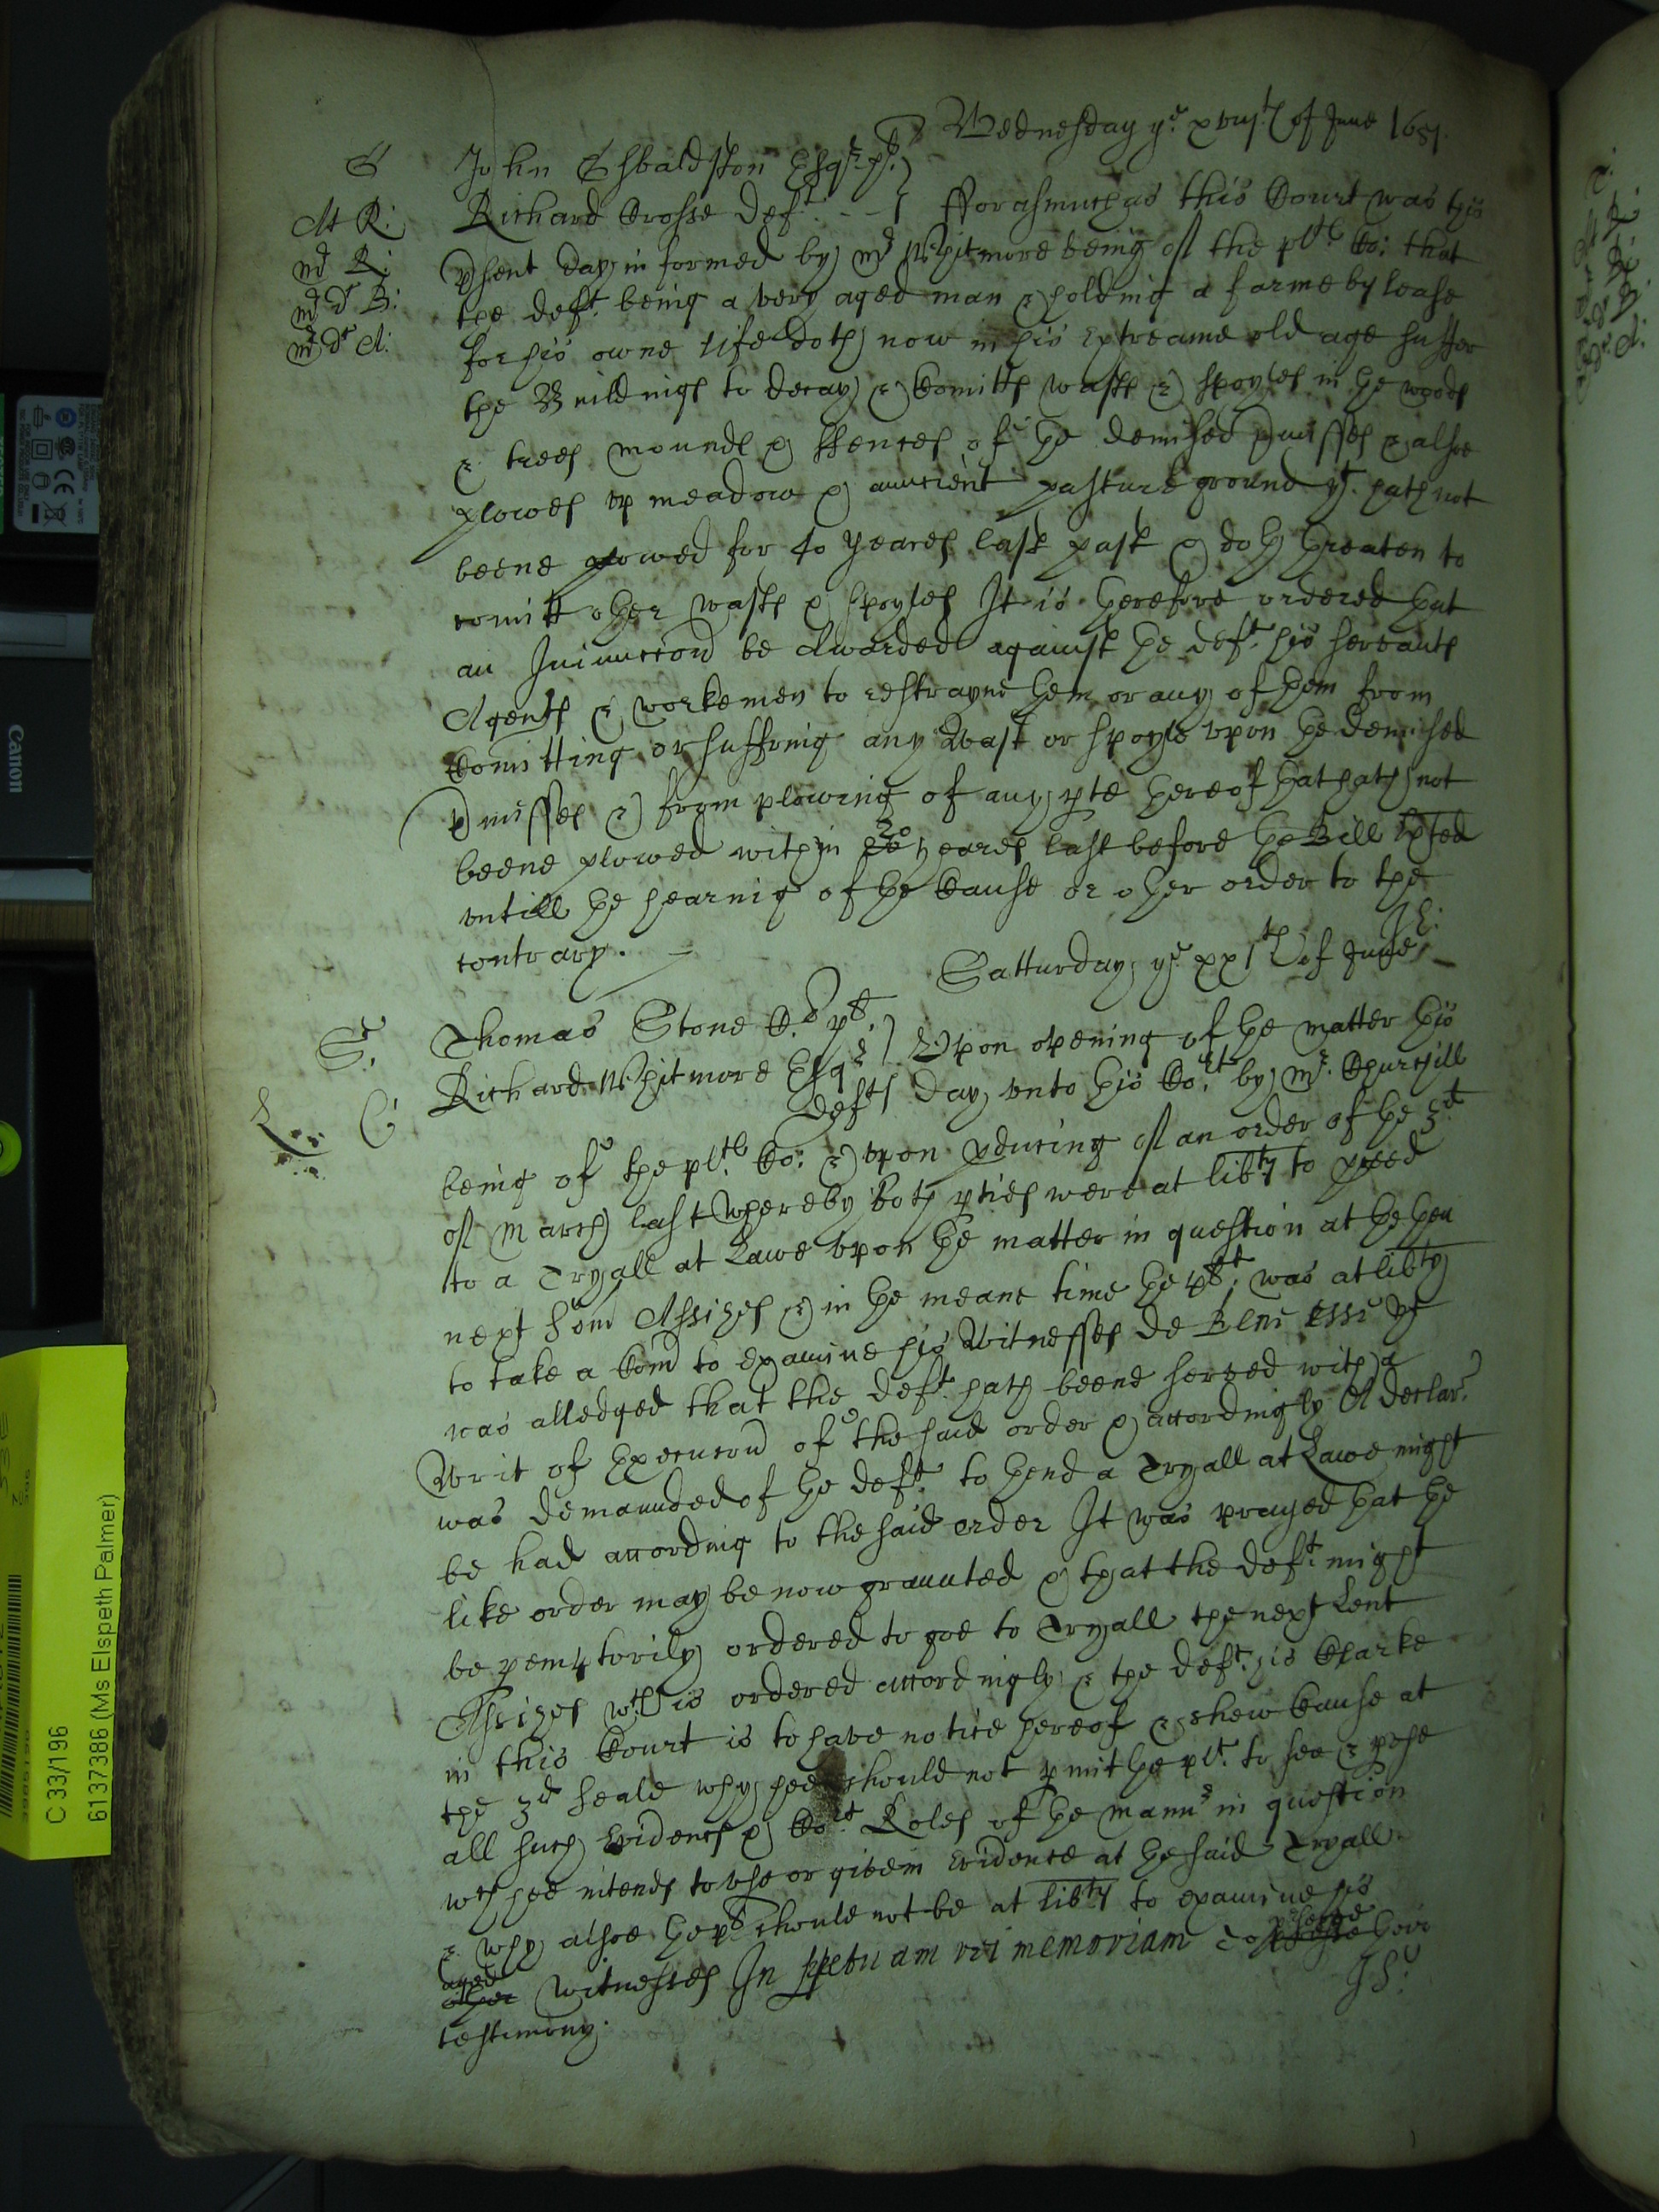 Wednesday ye xviijth of June 1651.
S John Esbaldston Esqr plt.
Mr R: Richard Crosse Deft. Fforasmuch as this Court was this
Mr R: psent day informed by Mr Whitmore being of the plts Co: that
Mr Dr B: the deft. being a very aged man & holding a farme by lease
Mr Dr A: for his owne life doth now in his extreame old age suffer
the Buildings to decay & Comitts wasts & spoyles in the woods
& trees mounds & ffences of the demised pmisses & alsoe
plowes up meadow & auncient pasture ground yt. hath not
beene plowed for 40 yeares last past & doth threaten to
comitt other wasts & spoyles It is therefore ordered that
an Iniunccon be Awarded against the deft. his servants
Agents & workemen to restrayne them or any of them from
Comitting or suffring any Wast or spoyle upon the demised
pmisses & from plowing of any pte thereof that hath not
beene plowed within 20 yeares last before the Bill exhted
untill the hearing of the Cause or other order to the
contrary.
Satturday ye xxjth of June
Sr. Thomas Stone plt.
C: Richard Whitmore Esqr Upon opening of the matter this
Defts day unto this Cort by Mr. Churchill
being of the plts Co: & upon pducing of an order of the 3d
of March last whereby both pties were at libty to pceed
to a Tryall at Lawe upon the matter in question at the then
next Som Assizes & in the meane time the plt. was at libty
to take a Com to examine his Witnesses de Bene esse yt
was alledged that the deft. hath beene served with a
Writ of Execucon of the said order & accordingly A declar.
was demaunded of the deft. to thend a Tryall at Lawe might
be had according to the said order It was prayed that the
like order may be now graunted & that the deft. might
be pemptorily ordered to goe to Tryall the next Lent
Assizes wch is ordered accordingly & the deft. his Clarke
in this Court is to have notice hereof & shew Cause at
the 3d seale why hee should not pmit the plt. to see & puse
all such Evidences & Cort Roles of the mannr in question
wch hee intends to use or give in Evidence at the said Tryall
& why alsoe the plt should not be at libty to examine his
aged
other witnesses In ppetuam rei memoriam to pserve their
testimony.
C 33/196
6137386 (Ms Elspeth Palmer)
Canon